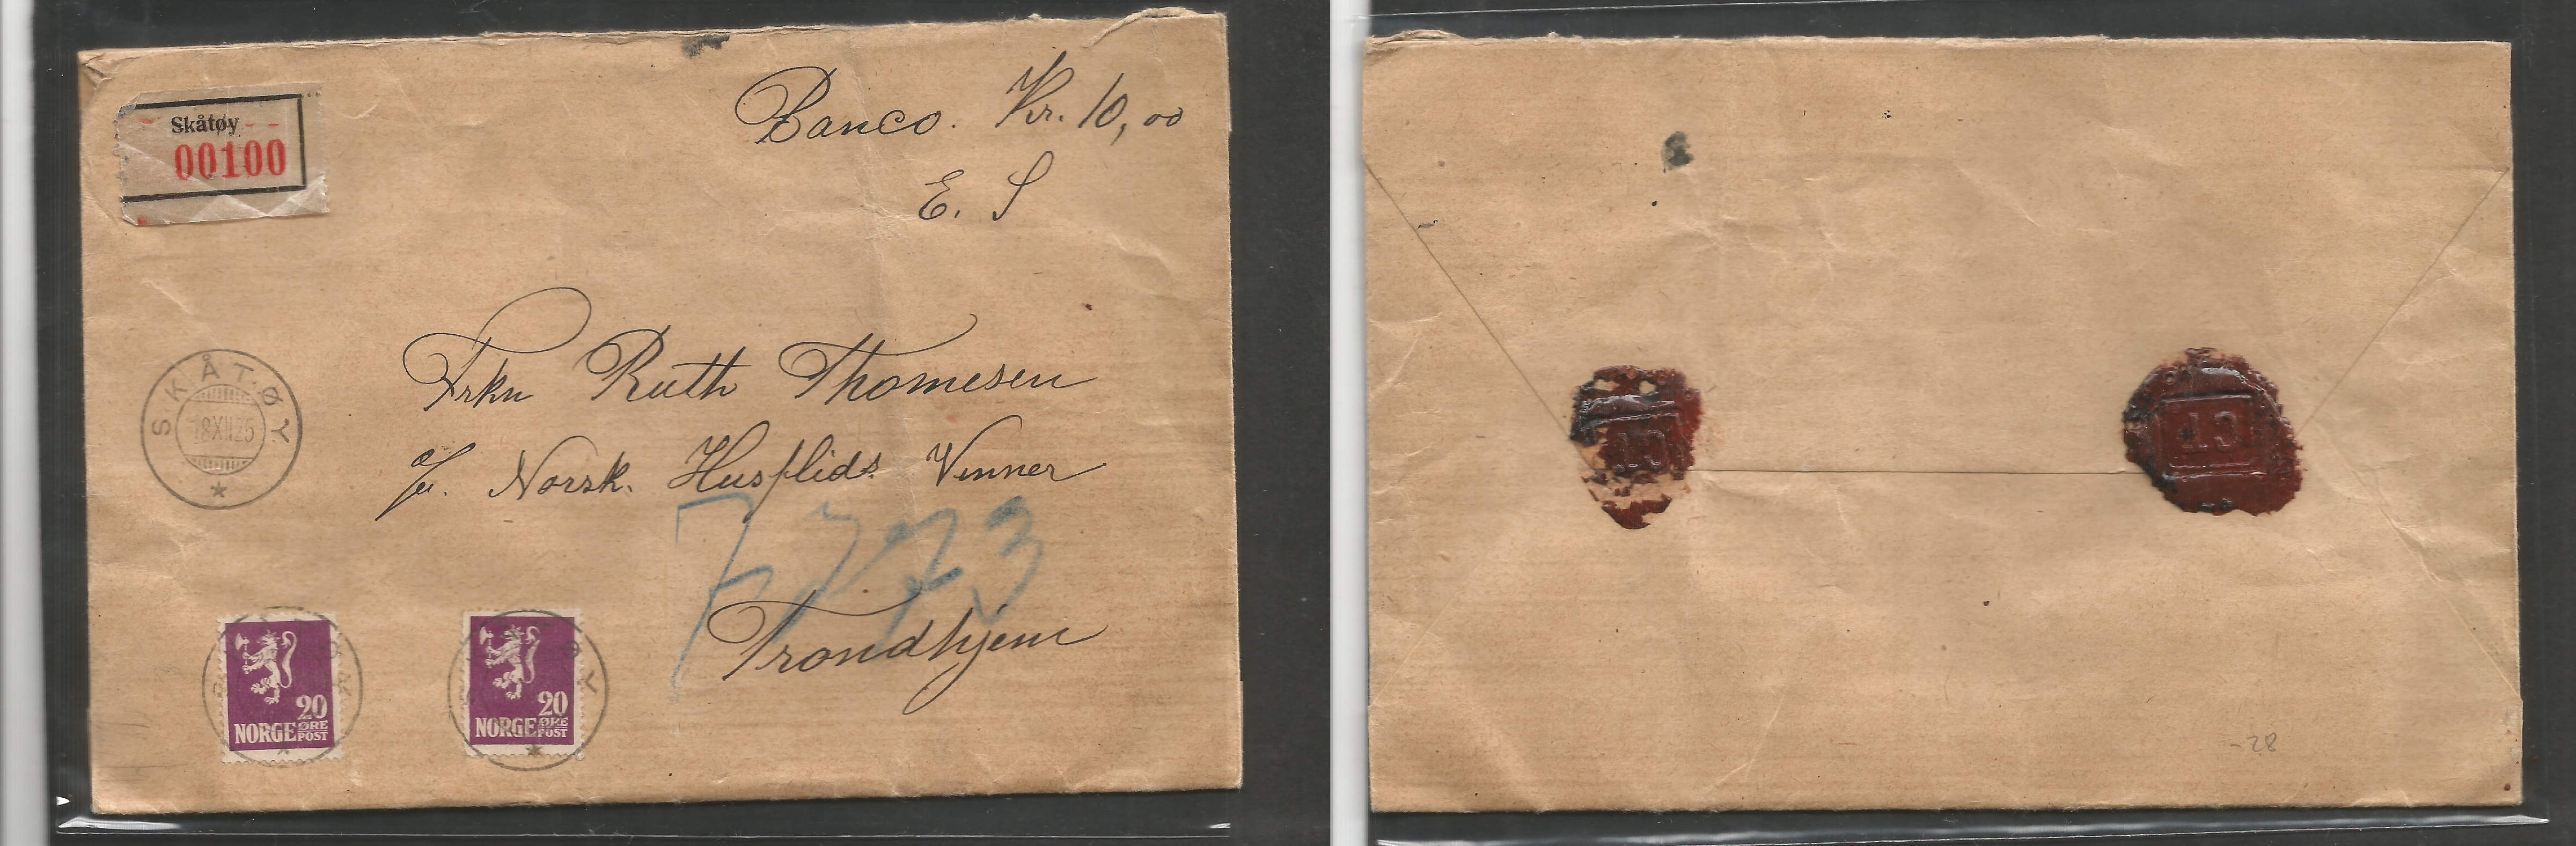 Skåtøy
00100
Banco. Kr. 10,00
E. S
SKÅTØY
18XII25
Frkn Ruth Thomesen
Norsk. Husflids Venner
Trondhjem
20
NORGE ØRE POST
20
NORGE ØRE POST
-28